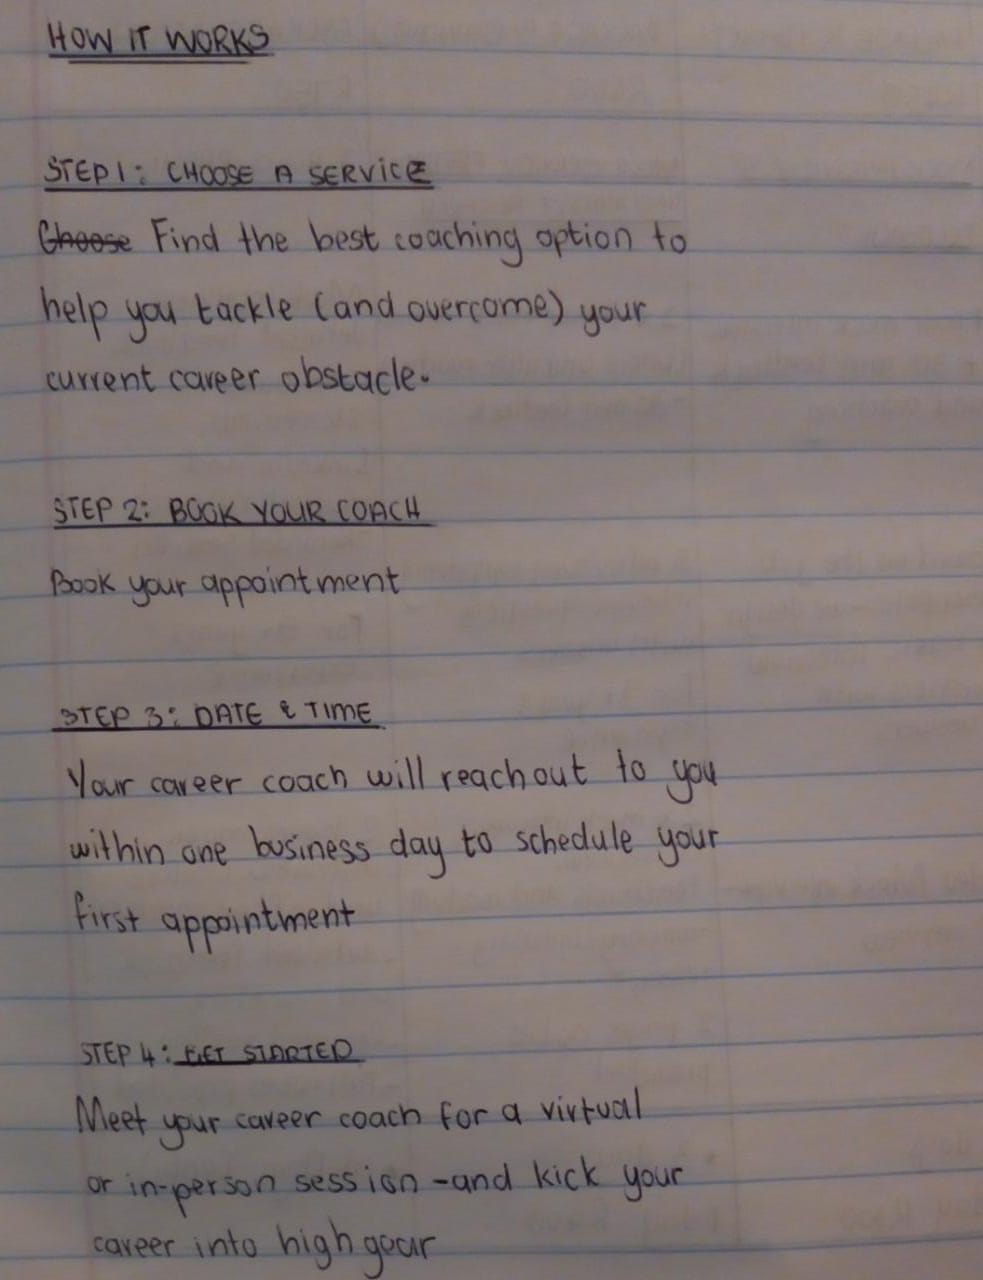 HOW IT WORKS
STEP 1: CHOOSE A SERVICE
Choose Find the best coaching option to
help you tackle (and overcome) your
current career obstacle.
STEP 2: BOOK YOUR COACH
Book your appointment
STEP 3: DATE & TIME
Your career coach will reach out to you
within one business day to schedule your
first appointment
STEP 4: GET STARTED
Meet your career coach for a virtual
or in-person session -and kick your
career into high gear